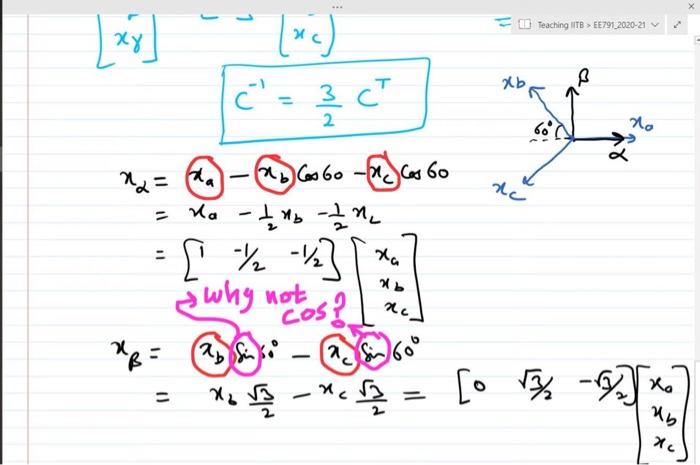 Teaching IITB > EE791_2020-21
[xγ] [x_c] =
C⁻¹ = 3/2 Cᵀ
x_b β
60° x_a
α
x_c
x_α = x_a - x_b Cos 60 - x_c Cos 60
= x_a - 1/2 x_b - 1/2 x_c
= [1 -1/2 -1/2] [x_a x_b x_c]
→ why not cos?
x_β = x_b Sin 60° - x_c Sin 60°
= x_b √3/2 - x_c √3/2 = [0 √3/2 -√3/2] [x_a x_b x_c]